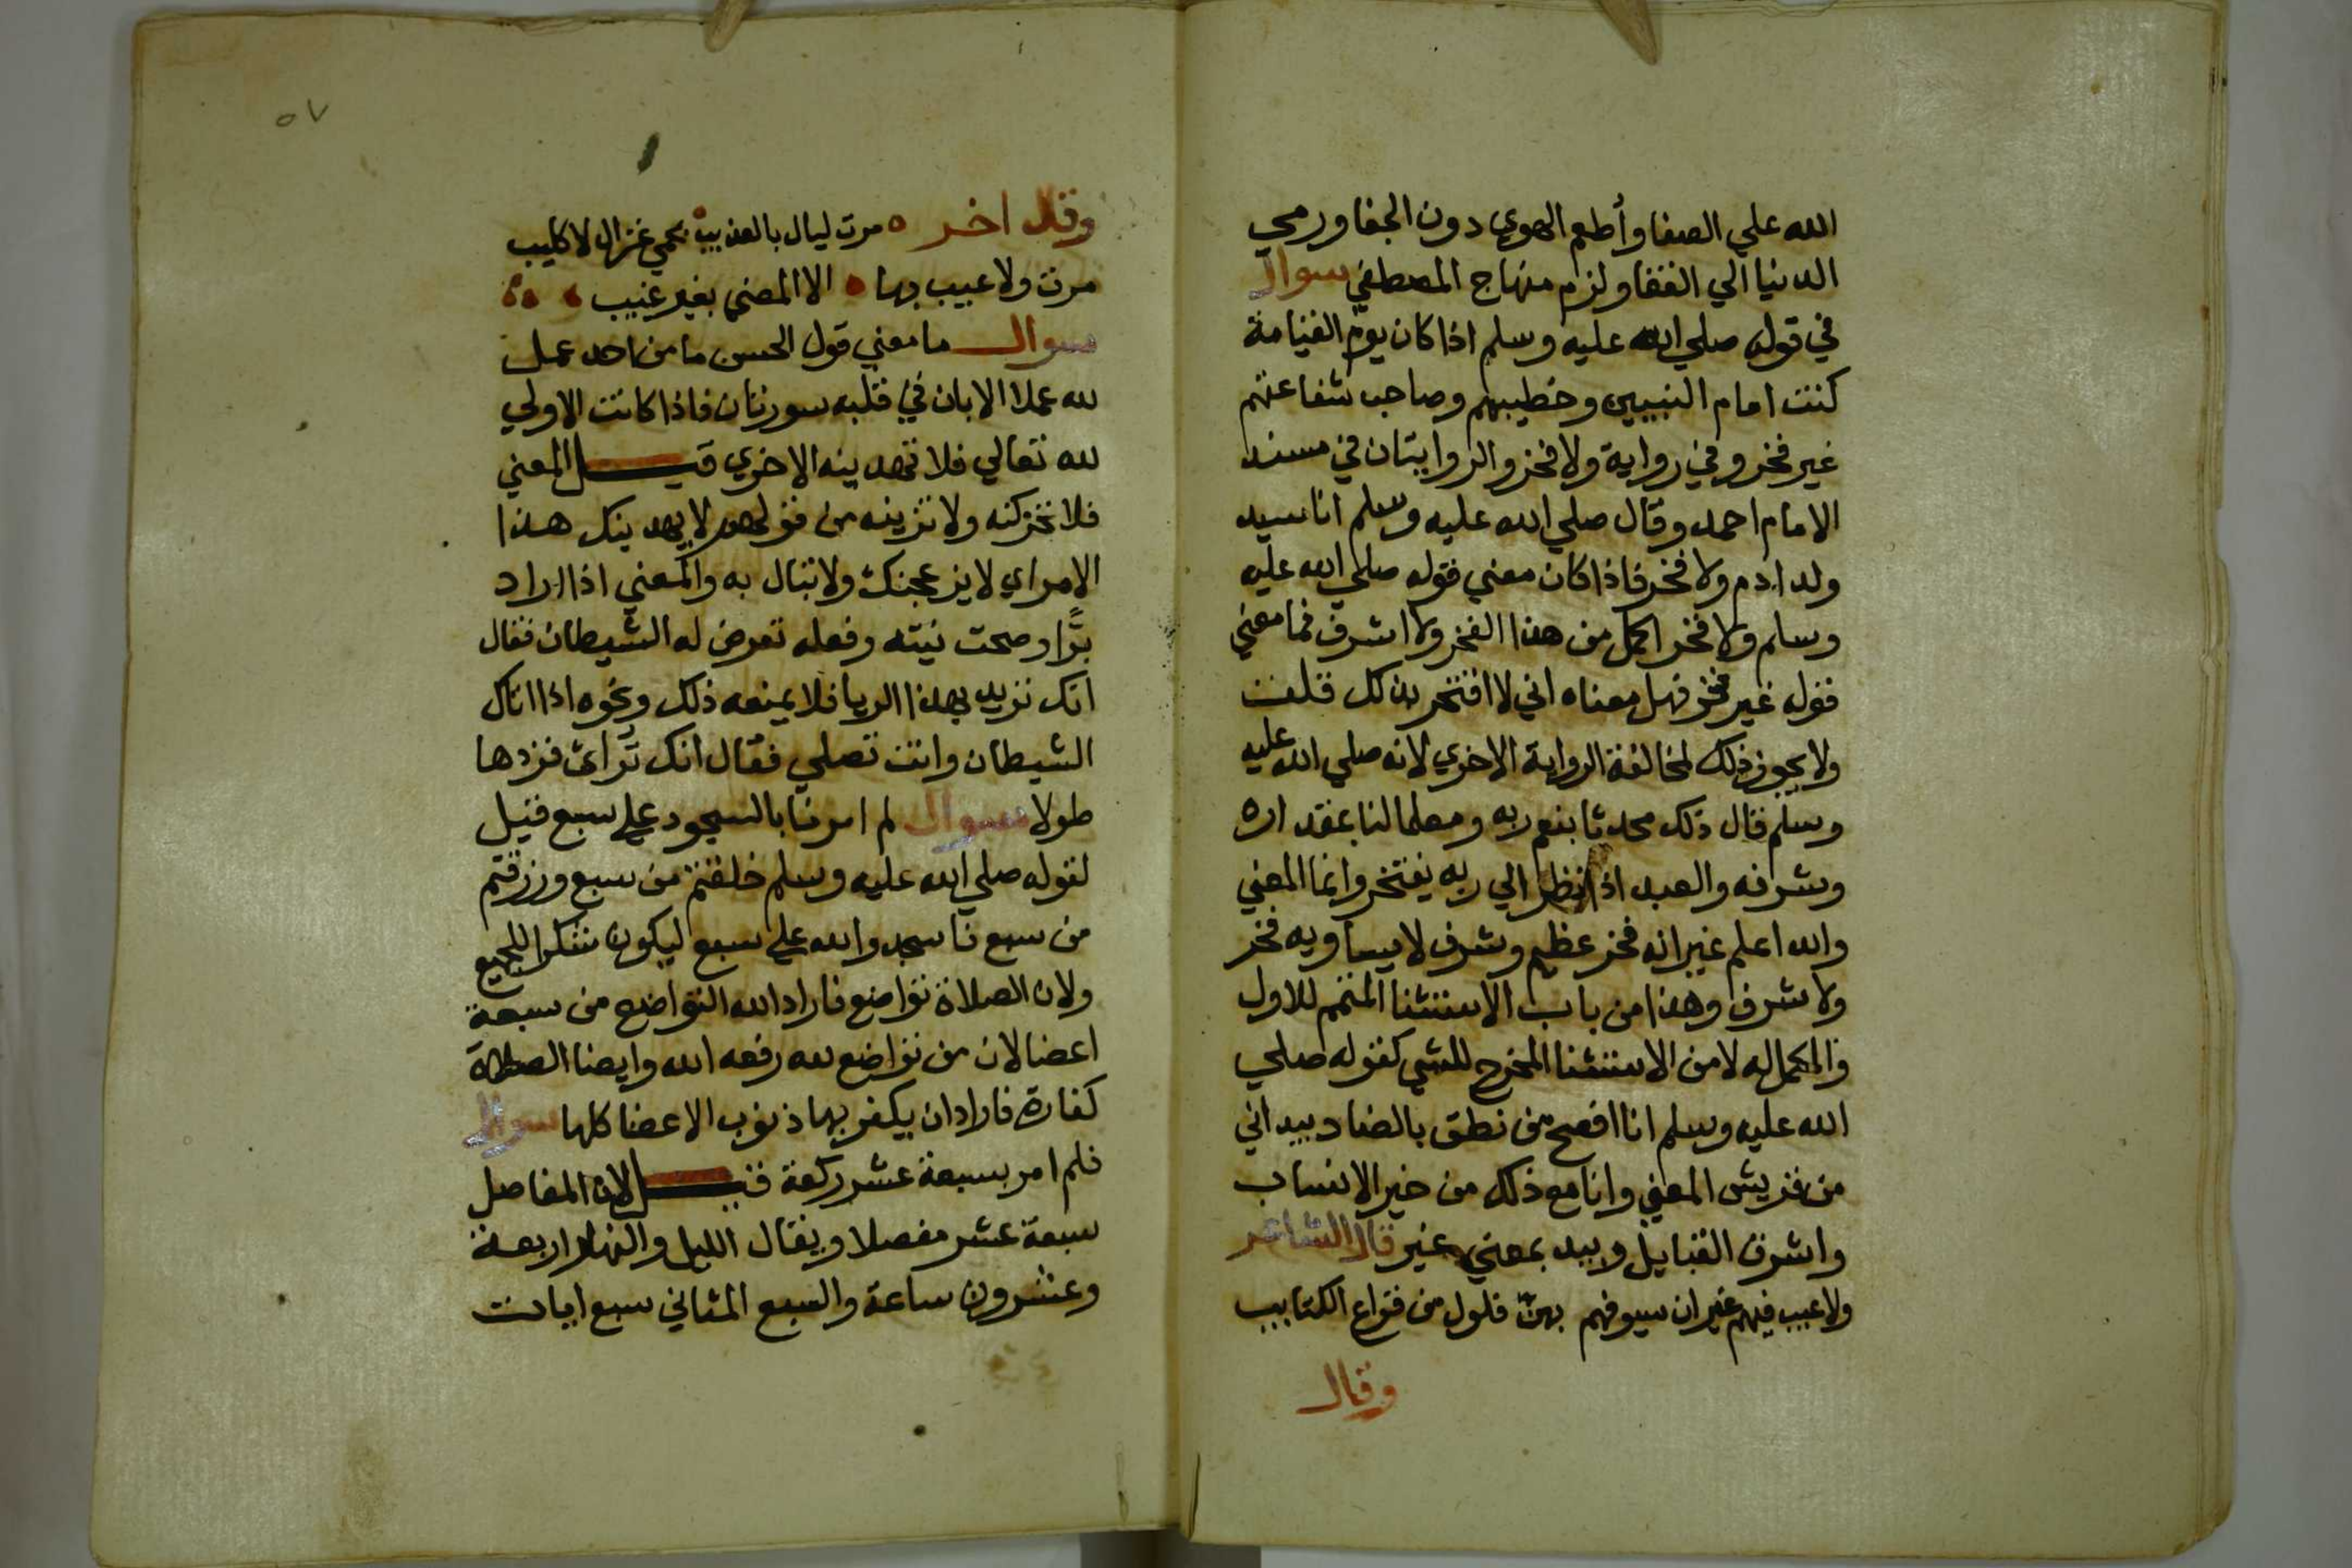 الله علي الصفا وأطعم الهوي دون الجفا ورمي
الدنيا الي القفا ولزم منهاج المصطفي سوال
في قوله صلي الله عليه وسلم اذا كان يوم القيامة
كنت امام النبيين وخطيبهم وصاحب شفاعتهم
غير فخر وفي رواية ولا فخر والروايتان في مسند
الامام احمد وقال صلي الله عليه وسلم انا سيد
ولد ادم ولا فخر فاذا كان معني قوله صلي الله عليه
وسلم ولا فخر اكمل من هذا الفخر ولا اشرف فما معني
قوله غير فخر فهل معناه اني لا افتخر بذلك قلت
ولا يجوز ذلك لمخالفة الرواية الاخري لانه صلي الله عليه
وسلم قال ذلك محدثا بنعم ربه ومعلما لنا بمقداره
وشرفه والعبد اذا نظر الي ربه يفتخر وانما المعني
والله اعلم غير انه فخر عظيم وشرف لا يساويه فخر
ولا شرف وهذا من باب الاستثنا المتمم للاول
والمكمل له لا من الاستثنا المخرج للشي كقوله صلي
الله عليه وسلم انا افصح من نطق بالضاد بيد اني
من قريش المعني وانا مع ذلك من خير الانساب
واشرف القبايل وبيد بمعني غير قال الشاعر
ولا عيب فيهم غير ان سيوفهم بهن فلول من قراع الكتايب
وقال
٥٧
وقال اخر مرت ليال بالعذيب بحمي غزال لا كليب
مرت ولا عيب بها الا المضي بغير عيب
سوال ما معني قول الحسن ما من احد عمل
لله عملا الا بان في قلبه سورتان فاذا كانت الاولي
لله تعالي فلا تهدينه الاخري قيل المعني
فلا تحركنه ولا تزينه من قولهم لا يهدينك هذا
الامر اي لا يزعجنك ولا تبال به والمعني اذا اراد
برًا وصحت نيته وفعله تعرض له الشيطان فقال
انك تريد بهذا الريا فلا يمنعه ذلك ونحوه اذا اتاك
الشيطان وانت تصلي فقال انك تُرائ فزدها
طولا سوال لم امرنا بالسجود علي سبع قيل
لقوله صلي الله عليه وسلم خلقتم من سبع ورزقتم
من سبع فاسجدوا لله علي سبع ليكون شكرا للجميع
ولان الصلاة تواضع فاراد الله التواضع من سبعة
اعضا لان من تواضع لله رفعه الله وايضا الصلاة
كفارة فاراد ان يكفر بها ذنوب الاعضا كلها سوال
فلم امر بسبعة عشر ركعة قيل لان المفاصل
سبعة عشر مفصلا ويقال الليل والنهار اربعة
وعشرون ساعة والسبع المثاني سبع ايات